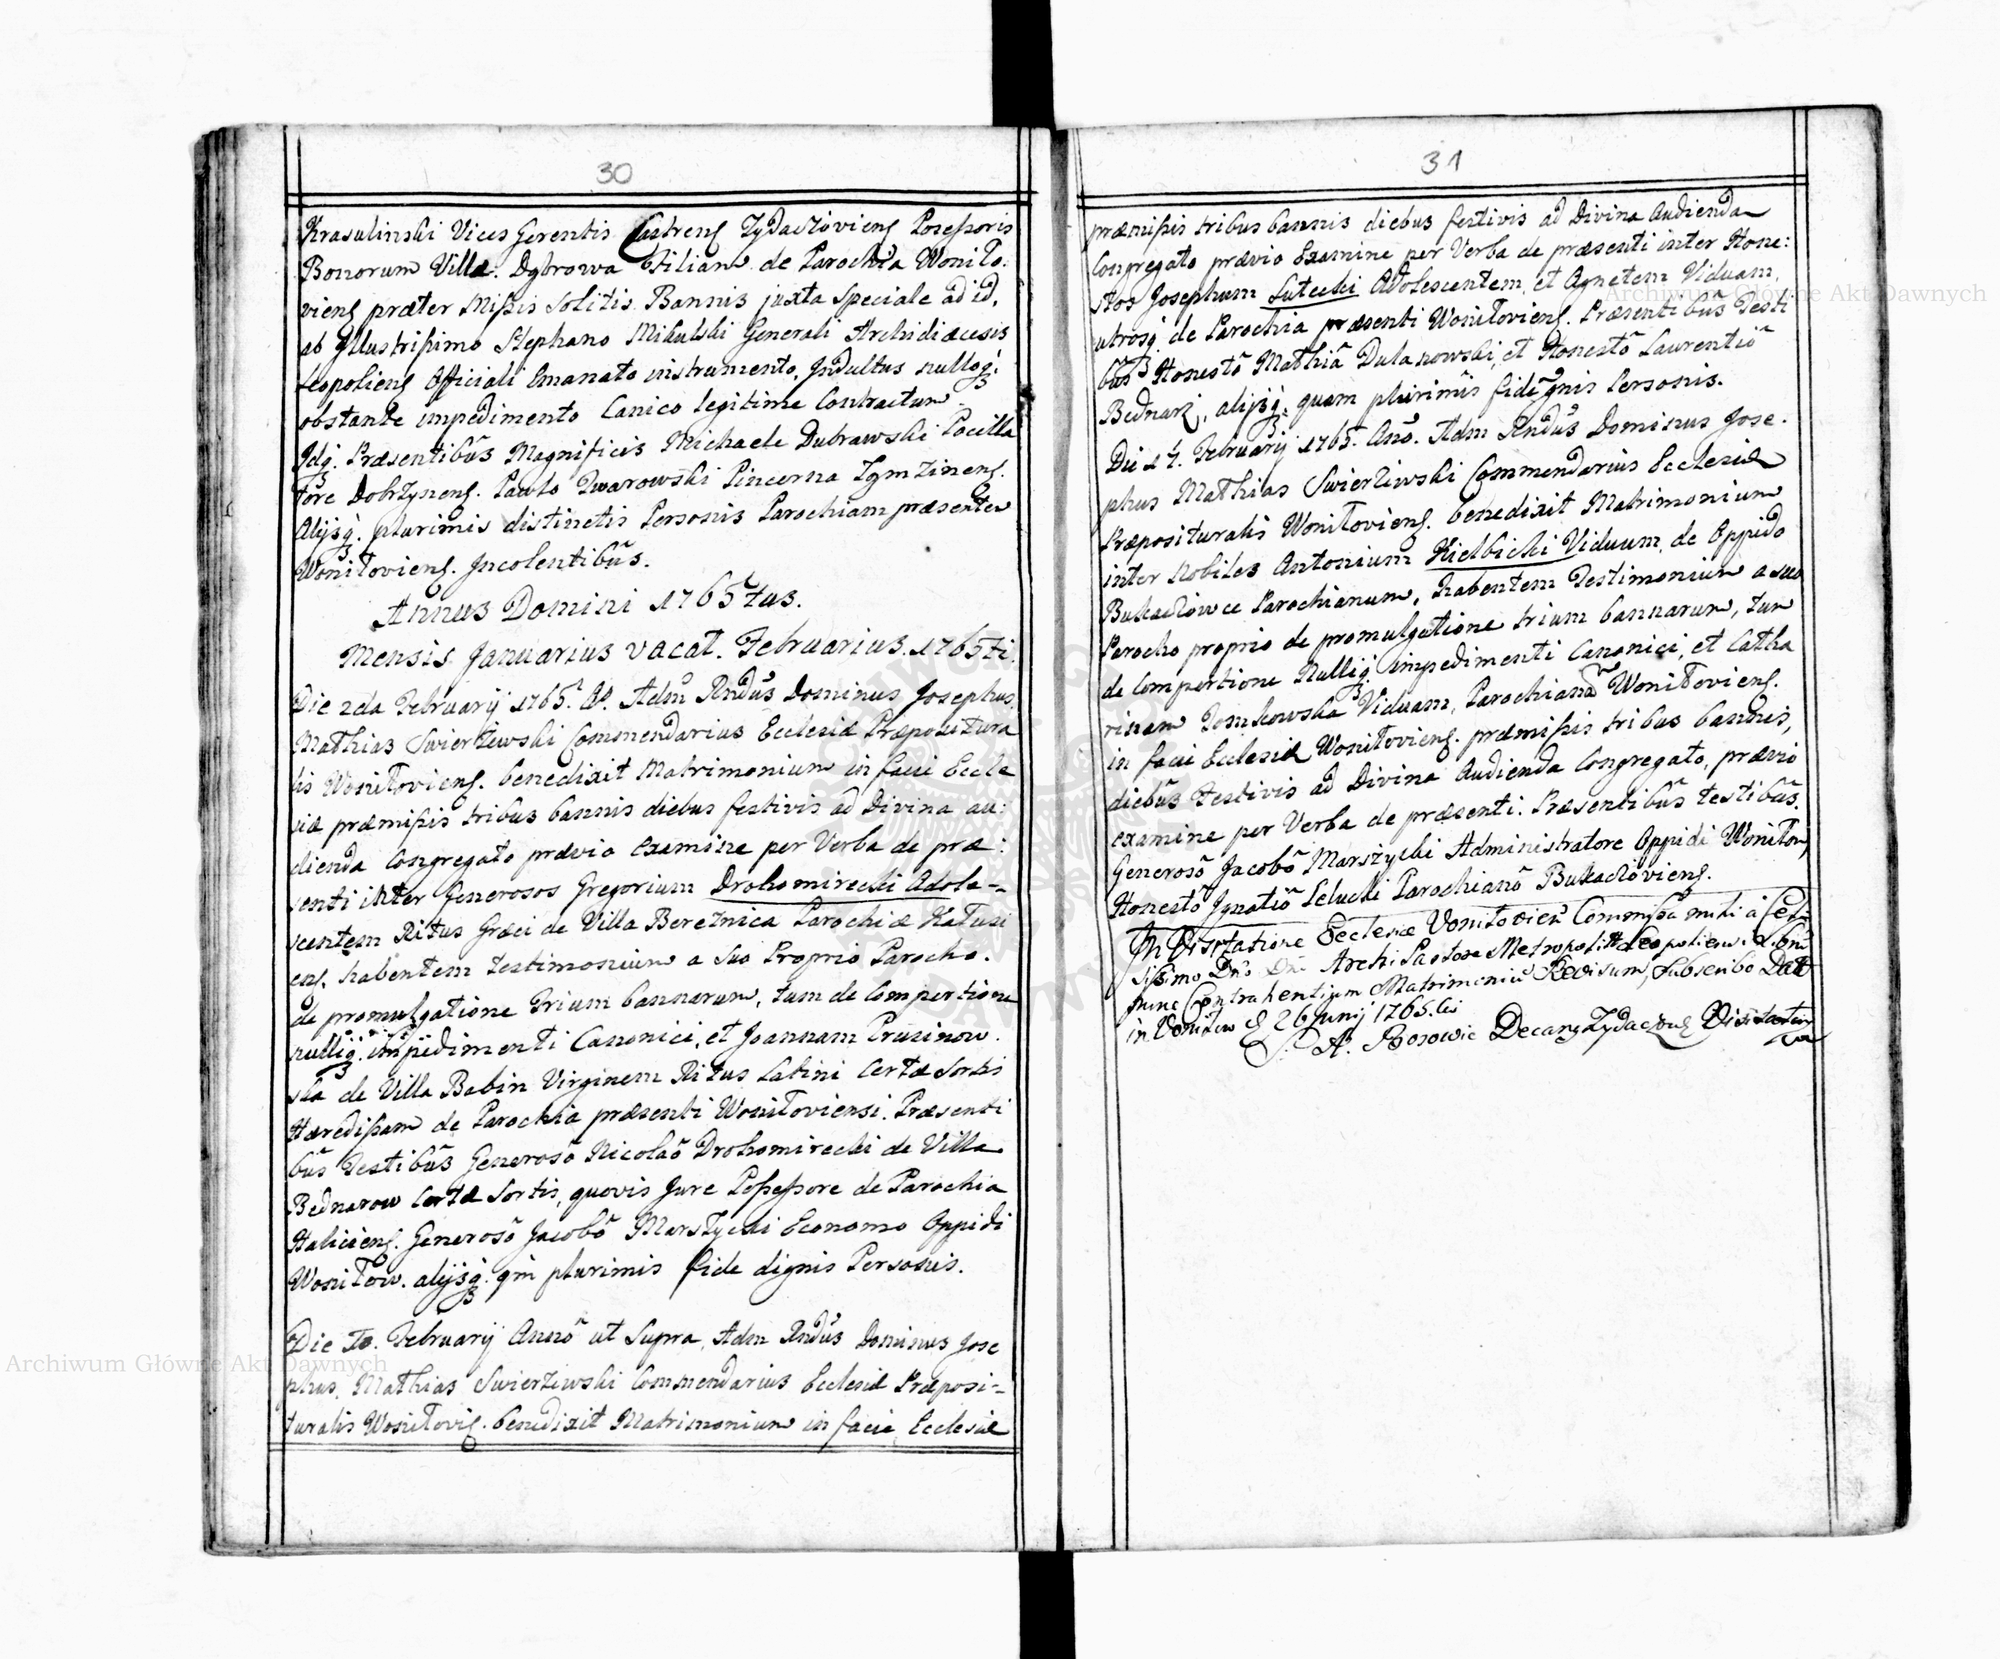 30
Krasulinski Vices Gerentis Castrens Zydaczoviens Possessoris
Bonorum Villæ. Dąbrowa Filiam de Parochia Woniło.
viens præter Missis Solitis Bannis juxta speciale ad id,
ab Illustrissimo Stephano Mikulski Generali Archidiæcesis
Leopoliens Officiali Emanato instrumento, Indultus nulloq;
obstante impedimento Canico legitime Contractum
Idq; Præsentibũs Magnificis Michaele Dubrawski Pocilla
tore Dobrzynens. Pawlo Dwarowski Pincerna
Alijsq; plurimis distinctis Personis Parochiam præsentem
Woniłoviens. Incolentibũs.
Annus Domini 1765tus.
Mensis Januarius vacat. Februarius. 1765ti.
Die 2da February 1765. Ao. Adm Rndũs Dominus Josephus
Mathias Swierziwski Commendarius Ecclesiæ Præpositura
lis Woniłoviens. benedixit Matrimonium in facie Eccle
siæ præmissis tribus bannis diebus festivis ad Divina au:
dienda Congregato prævio examine per Verba de præ:
senti inter Generosos Gregorium Drohomirecki Adole-
scentem Ritus Græci de Villa Bereznica Parochiæ Kałusi
ens. habentem testimonium a Suo Proprio Parocho.
de promulgatione Trium bannorum, tum de Compertione
nulliq; impedimenti Canonici, et Joannam Prusinow.
ska de Villa Babin Virginem Ritus Latini Certæ Sortis
Hæredissam de Parochia præsenti Woniłoviensi. Præsenti
bũs Testibũs Generosõ Nicolaõ Drohomirecki de Villa
Bednarow Certæ Sortis, quovis Jure Possessore de Parochia
Haliciens. Generosõ Jacobõ Marszycki Economo Oppidi
Woniłow. alijsq; qm plurimis fide dignis Personis.
Die 10. February Annõ ut Supra, Adm Rndũs Dominus Jose
phus, Mathias Swierziwski Commendarius Ecclesiæ Præposi-
turalis Woniłovis. benedixit Matrimonium in facie Ecclesiæ
31
præmissis tribus bannis diebus festivis ad Divina Audienda
Congregato prævio Examine per Verba de præsenti inter Hone:
stos Josephum Lutecki Adolescentem, et Agnetem Viduam,
utrosq; de Parochia præsenti Woniłoviens. Præsentibũs Testi
bũs Honestõ Mathiã Dulanowski, et Honestõ Laurentiõ
Bednarz, alijsq; quam plurimis fide dignis Personis.
Die 17. February 1765. Anõ. Adm Rndũs Dominus Jose.
phus Mathias Swierziwski Commendarius Ecclesiæ
Præposituralis Woniłoviens. benedixit Matrimonium
inter Nobiles Antonium Kiełbicki Viduum, de Oppido
Bukaczowce Parochianum, habentem Testimonium a suo
Parocho proprio de promulgatione trium bannorum, tum
de Compertione Nulliq; impedimenti Canonici, et Catha
rinam Domkowska Viduam, Parochianã Woniłoviens.
in facie Ecclesiæ Woniłoviens. præmissis tribus bannis,
diebũs Festivis ad Divina Audienda Congregato, prævio
examine per Verba de præsenti. Præsentibũs testibũs.
Generosõ Jacobõ Marszycki Administratore Oppidi Woniłow,
Honestõ Ignatiõ Lelucki Parochianõ Bukaczoviens.
In Visitatione Ecclesiæ Voniłovien Commissa mihi a Cels-
sissimo Dno Dno Archi Pastore Metropolitta Leopoliensi Libru
hunc Contrahentium Matrimoniũ Revisum, Subscribo Datt
in Voniłow D 26 Junij 1765. ei
S. A. Borowic Decans Zydaczovs Visitator